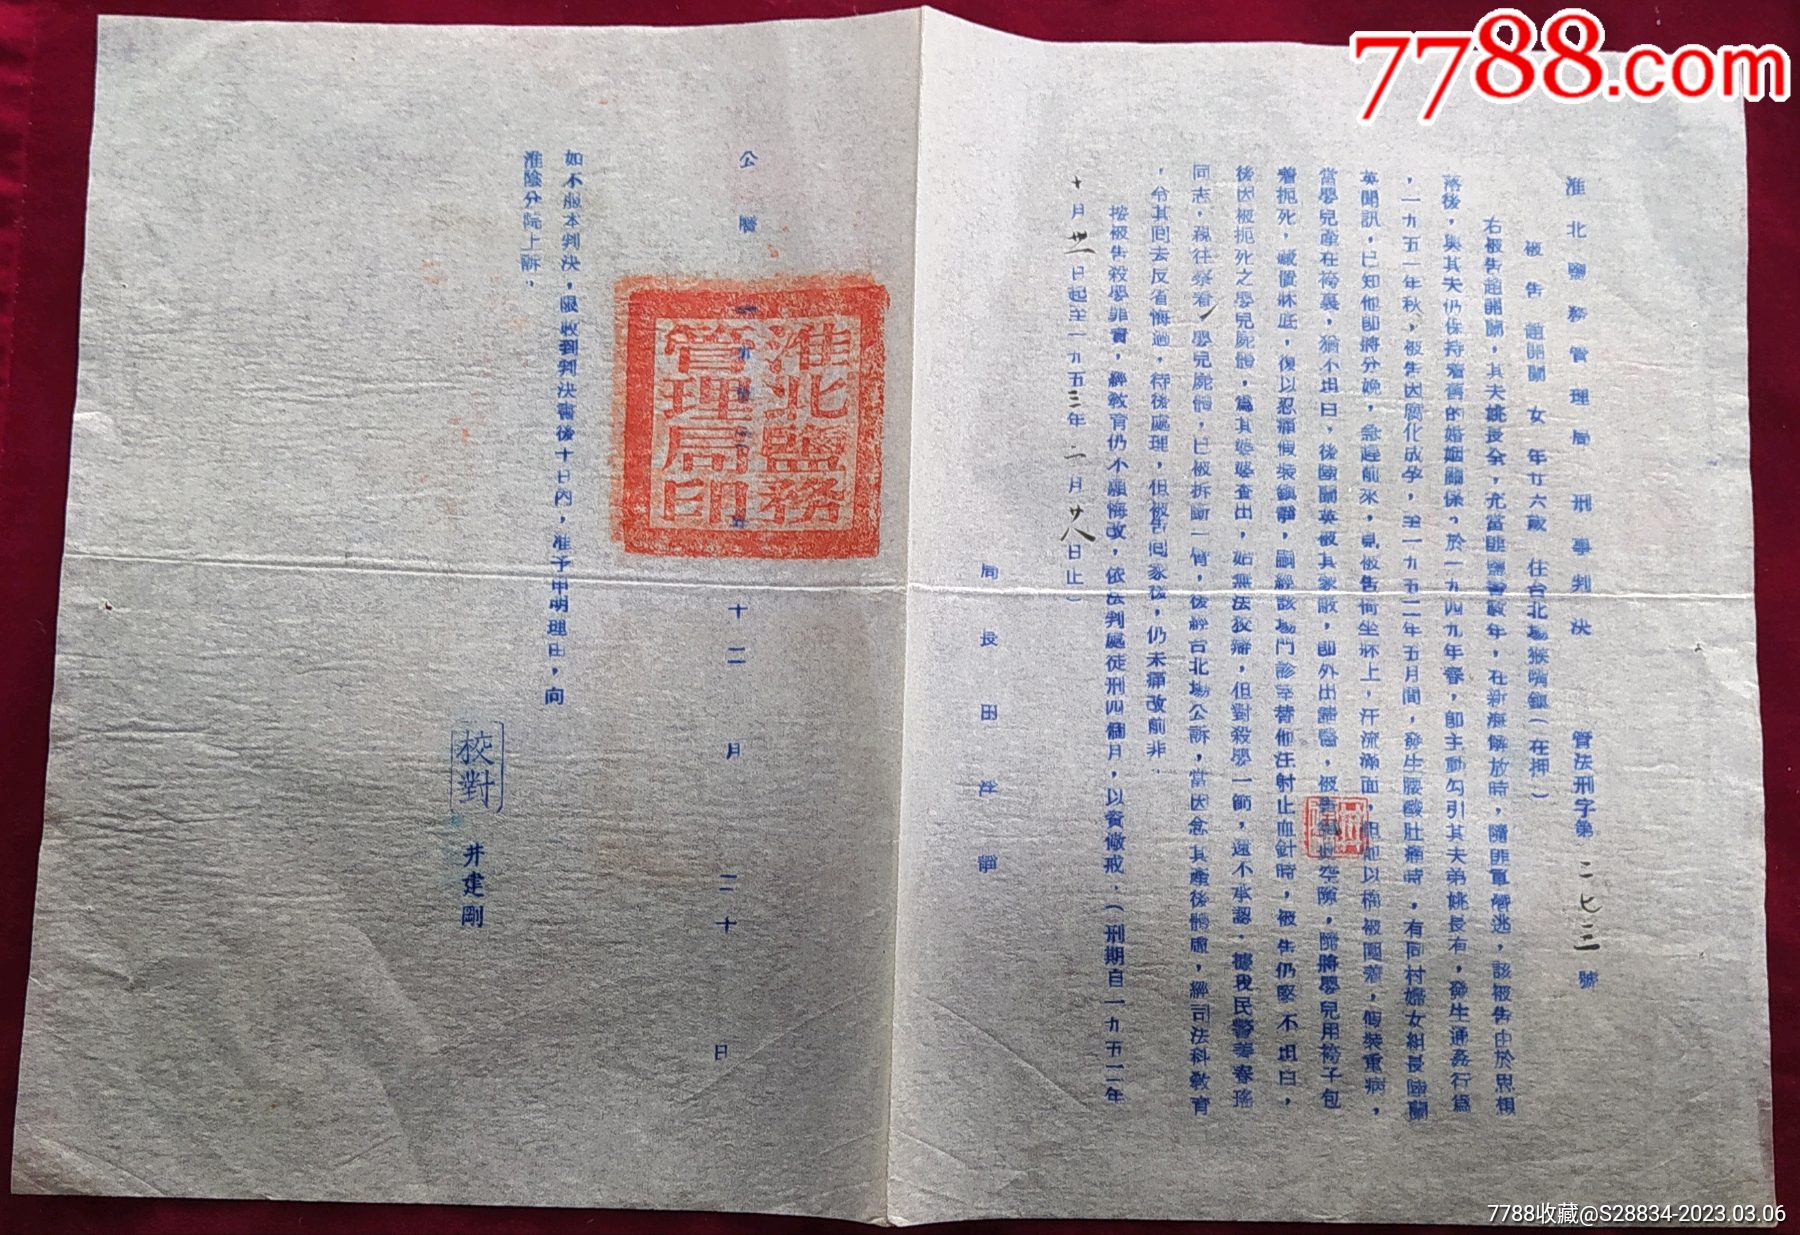 7788.com
淮北鹽務管理局 刑事判決 管法刑字第二七三號
被告 趙開蘭 女 年廿六歲 住台北場猴嘴鎮(在押)
右被告趙開蘭,其夫姚長全,充當匪鹽警數年,在新海解放時,隨匪軍潛逃,該被告由於思想
落後,與其夫仍保持着舊的婚姻關係,於一九四九年春,即主動勾引其夫弟姚長有,發生通姦行為
,一九五一年秋,被告因腐化成孕,至一九五二年五月間,發生腰酸肚痛時,有同村婦女組長國蘭
英聞訊,已知他即將分娩,急趕前來,見被告倚坐床上,汗流滿面,但他以棉被圍着,假裝重病,
當嬰兒產在袴裏,猶不坦白,後國蘭英被其家敢,即外出請醫,被告趁此空隙,隨將嬰兒用袴子包
着扼死,藏置床底,復以忍痛假裝鎮靜,嗣經該場門診室替他注射止血針時,被告仍堅不坦白,
後因被扼死之嬰兒屍體,為其婆婆查出,始無法狡辯,但對殺嬰一節,還不承認,據我民警季春瑤
同志,親往察看,嬰兒屍體,已被拆斷一臂,後經台北場公訴,當因念其產後體虛,經司法科教育
,令其回去反省悔過,待後處理,但被告回家後,仍未痛改前非。
按被告殺嬰罪實,經教育仍不願悔改,依法判處徒刑四個月,以資儆戒.(刑期自一九五二年
十月廿一日起至一九五三年二月廿八日止)
局長 田浮靜
公曆一九五二年十二月二十日
淮北鹽務
管理局印
如不服本判決,限收到判決書後十日內,准予申明理由,向
淮陰分院上訴。
校對 井建剛
7788收藏@S28834-2023.03.06